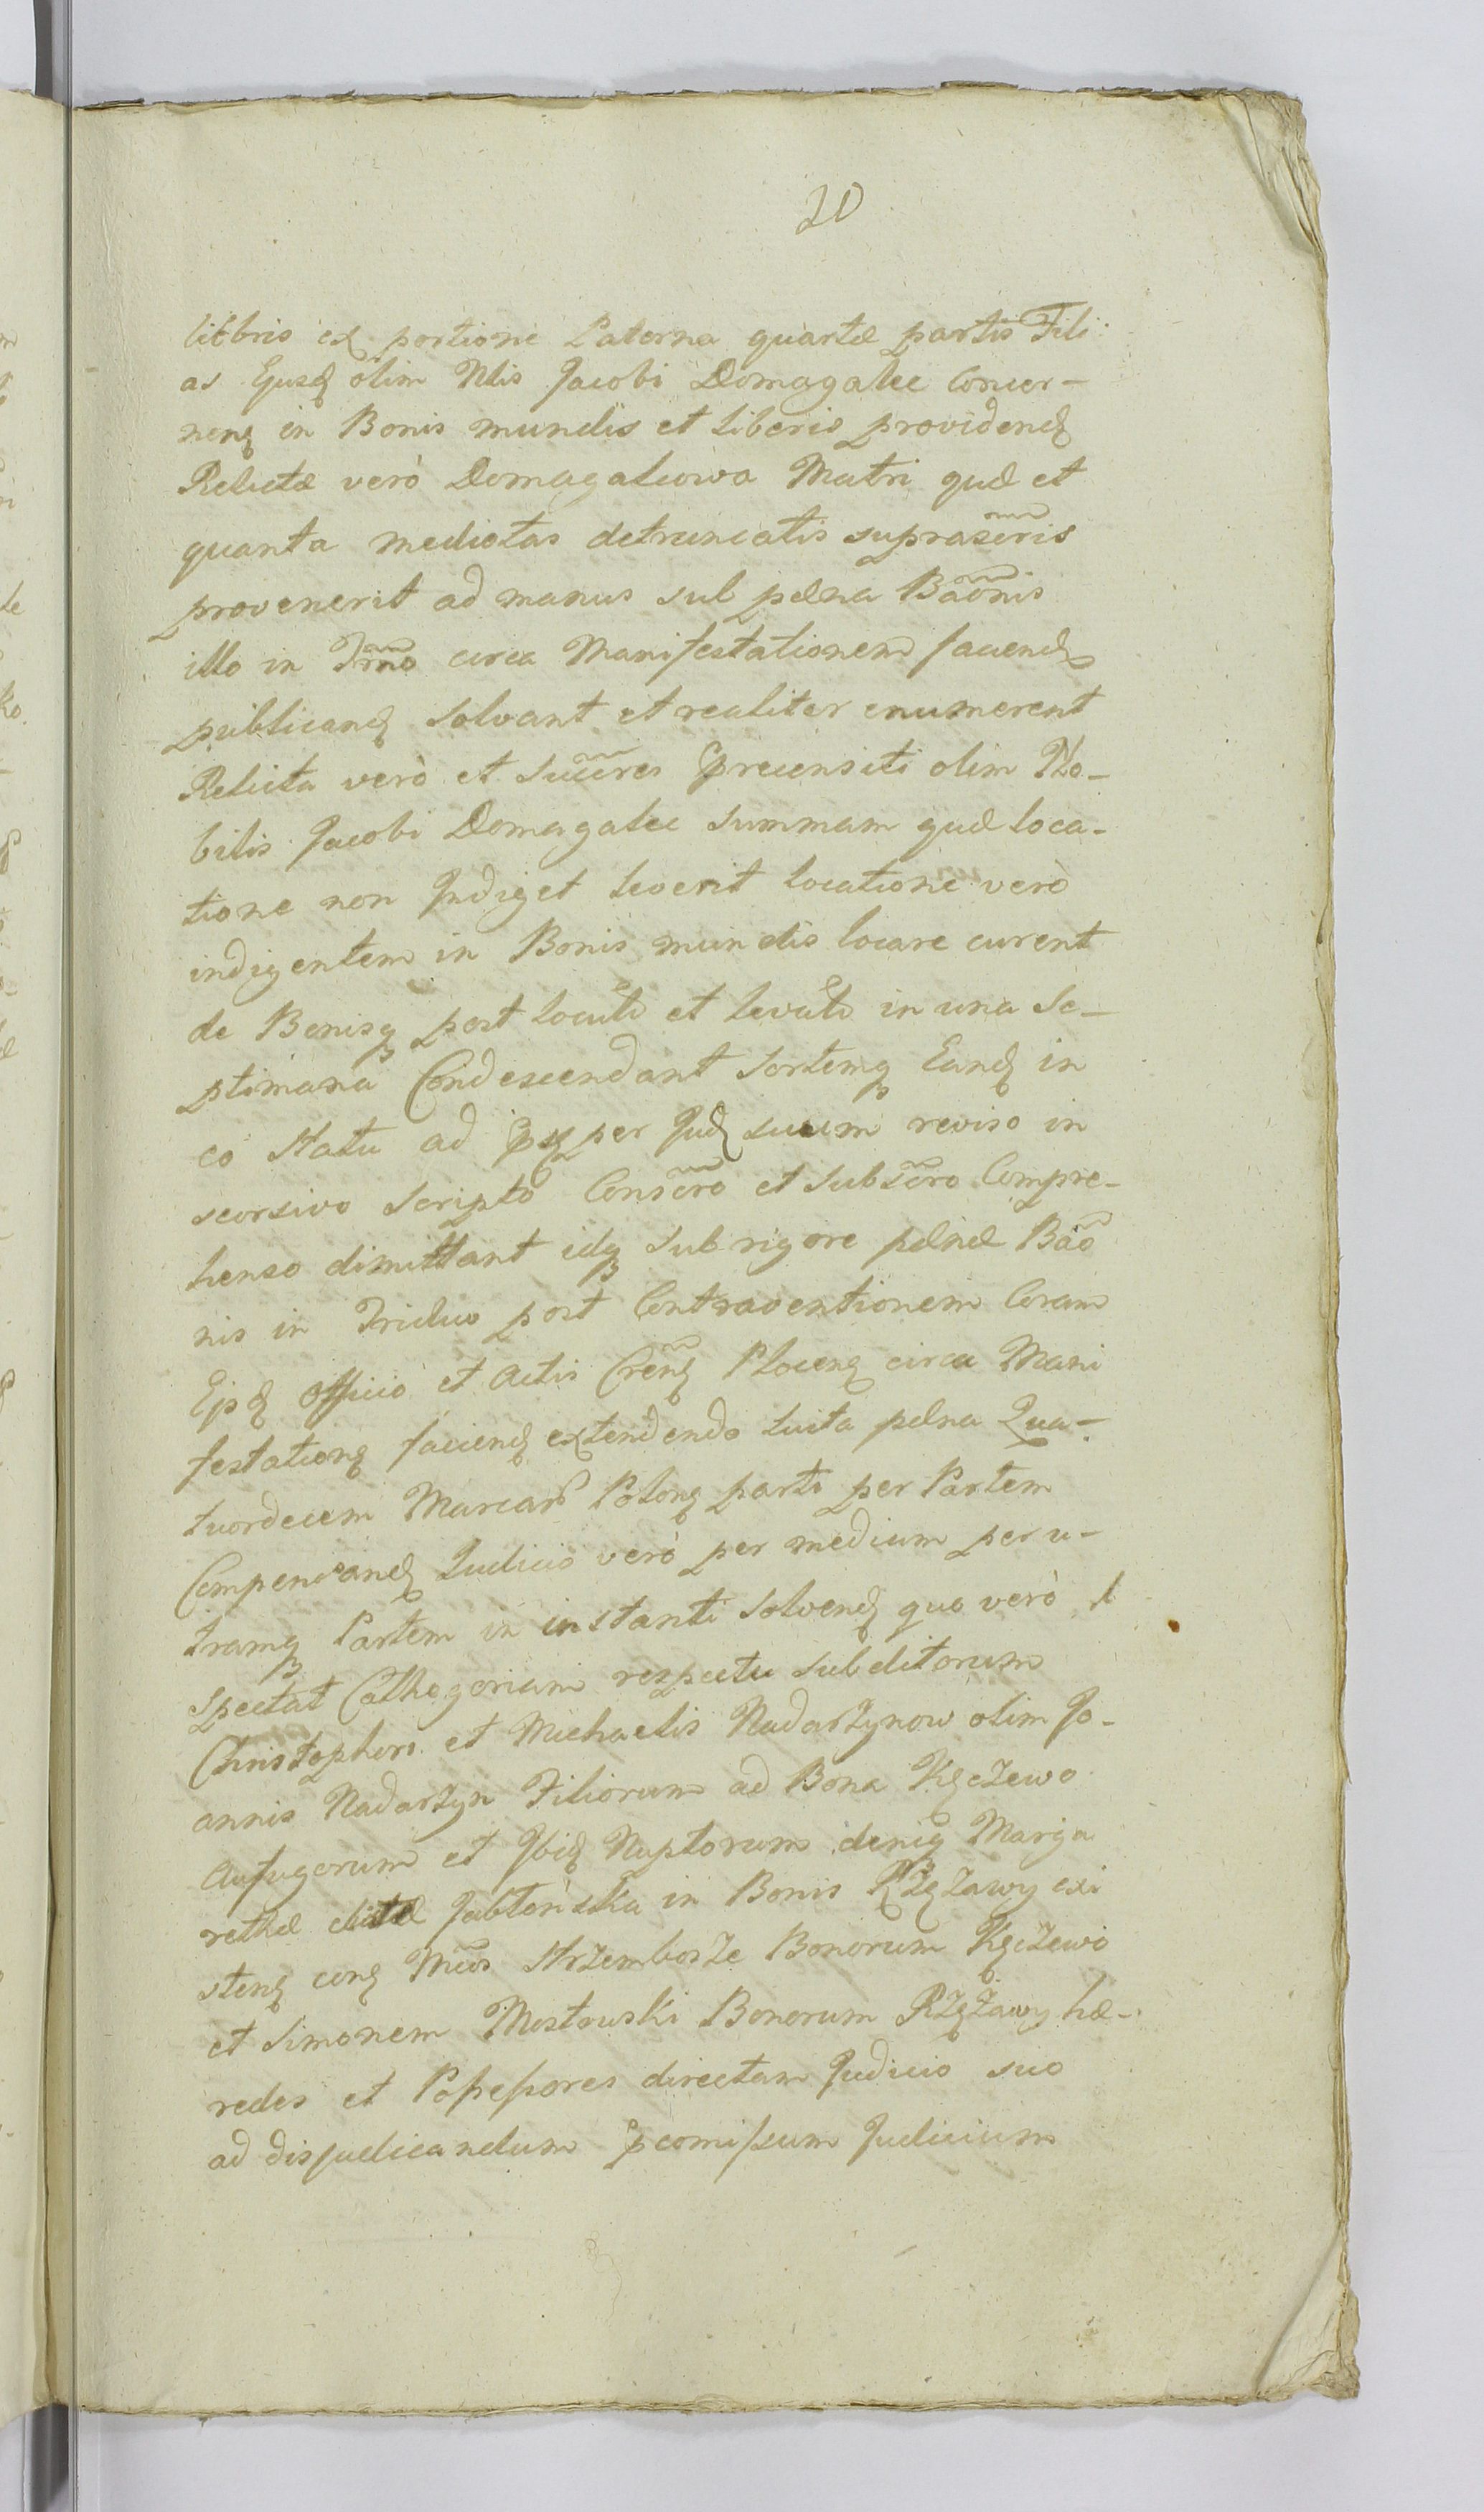 20
libris ex portione Paterna quartæ partis Fili
as Ejusdꝫ olim Nlis Jacobi Domagalec Concer-
nenꝫ in Bonis mundis et liberis providendꝫ
Relictæ verò Domagalcowa Matri quæ et
quanta medietas detruncatis suprascris
provenerit ad manus sub pæna Baõnis
illo in Trmno circa Manifestationem faciendꝫ
publicandꝫ solvant et realiter enumerent
Relicta verò et Succres præcensiti olim No-
bilis Jacobi Domagalec summam quæ loca-
tione non Indiget leverit locatione verò
indigentem in Bonis mundis locare curent
de Bonisqꝫ post et in una Se-
ptimana Condescendant Sortemqꝫ Eandꝫ in
eo Statu ad per Judꝫ suum reviso in
seorsivo Scripto Conscro et Subscro Compre-
henso dimittant idqꝫ sub rigore pænæ Bao
nis in Triduo post Contraventionem Coram
Officio et Actis Plocenꝫ circa Mani
festationꝫ faciendꝫ extendendo luita pæna Qua-
tuordecem Marcarũ Polonꝫ parti per Partem
Compensandꝫ Judicio verò per medium per u-
tramqꝫ Partem in instanti solvendꝫ quo verò
spectat Cathegoriam respectu subditorum
Christophori et Michaelis Nadarzynow olim Jo-
annis Nadarzyn Filiorum ad Bona Kęczewo
Aufugorum et Ibidꝫ Nuptorum deniqꝫ Marga
rethæ dictæ Jabłońska in Bonis Rżązawy exi
stenꝫ Strzembosze Bonorum Kęczewo
et Simonem Mostowski Bonorum Rżązawy hæ-
redes et Possessores directam Judicio suo
ad disjudicandum Judicium